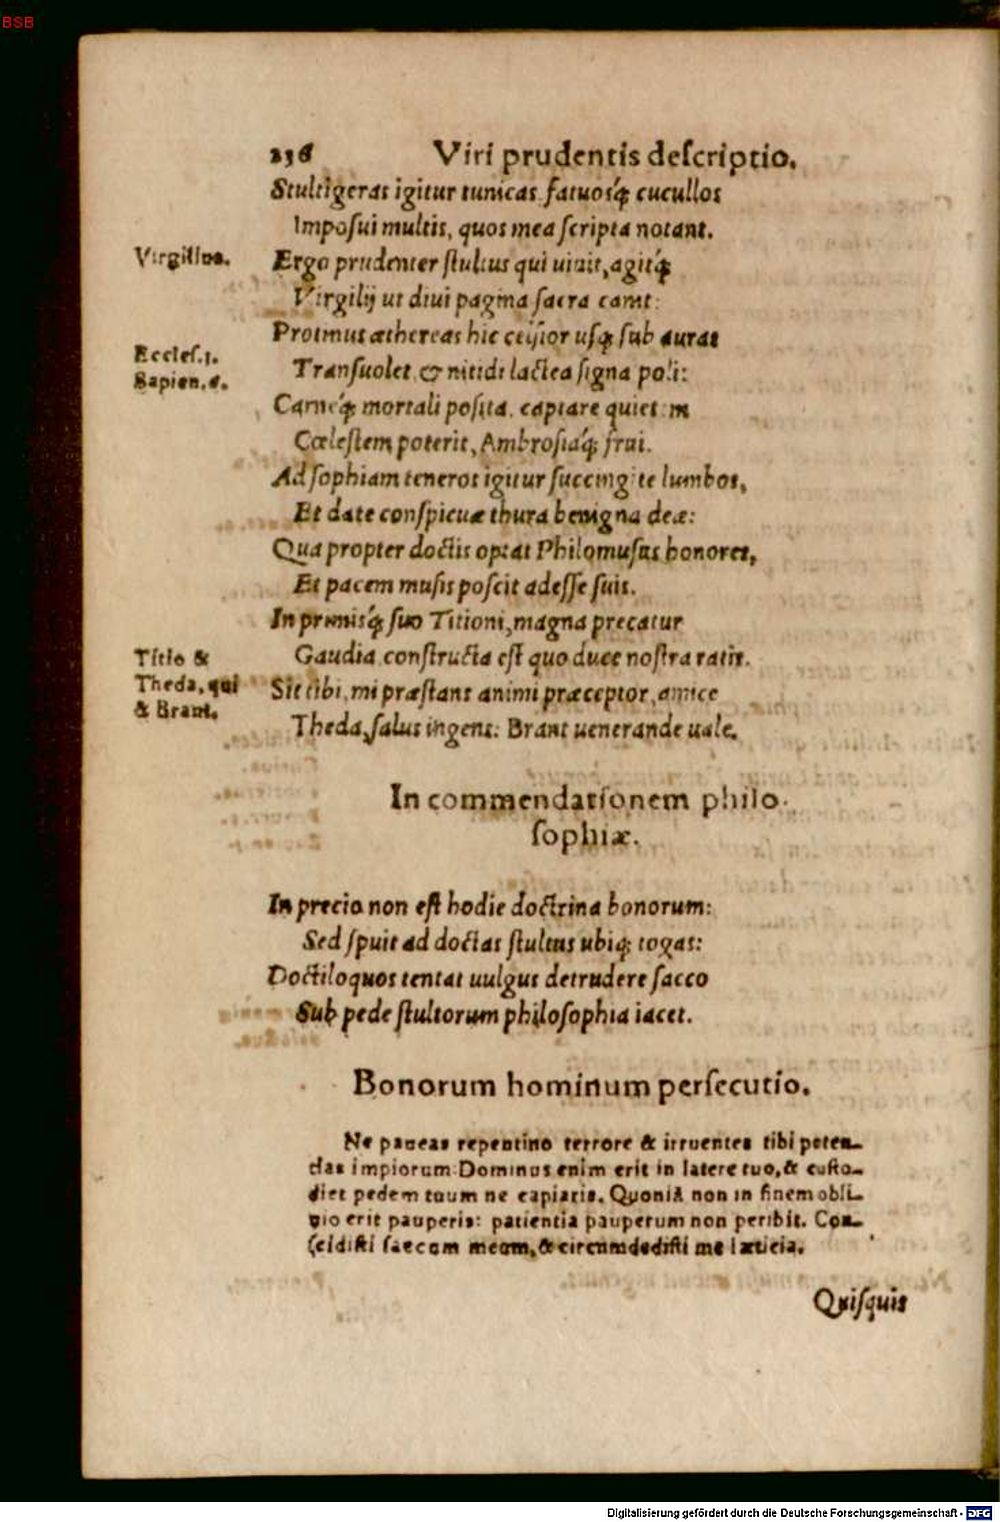 BSB
236 Viri prudentis deſcriptio.
Stultigeras igitur tunicas, fatuosq́ꝫ cucullos
Impoſui multis, quos mea ſcripta notant.
Virgilius.
Ergo prudenter ſtultus qui uiuit, agitq́ꝫ
Virgilij ut diui pagina ſacra canit:
Protinus æthereas hic celſior uſqꝫ ſub auras
Eccleſ.1.
Sapien.6.
Tranſuolet, & nitidi lactea ſigna poli:
Carneq́ꝫ mortali poſita, captare quietem
Cœleſtem poterit, Ambroſiaq́ꝫ frui.
Ad ſophiam teneros igitur ſuccingite lumbos,
Et date conſpicuæ thura benigna deæ:
Qua propter doctis optat Philomuſus honores,
Et pacem muſis poſcit adeſſe ſuis.
In primisq́ꝫ ſuo Titioni, magna precatur
Titio &
Theda, qui
& Brant.
Gaudia conſtructa eſt quo duce noſtra ratis.
Sit tibi, mi præſtans animi præceptor, amice
Theda, ſalus ingens: Brant uenerande uale.
In commendationem philo-
ſophiæ.
In precio non eſt hodie doctrina bonorum:
Sed ſpuit ad doctas ſtultus ubiqꝫ togas:
Doctiloquos tentat uulgus detrudere ſacco
Sub pede ſtultorum philoſophia iacet.
Bonorum hominum perſecutio.
Ne paueas repentino terrore & irruentes tibi poten-
tias impiorum: Dominus enim erit in latere tuo, & cuſto-
diet pedem tuum ne capiaris. Quoniā non in finem obli-
uio erit pauperis: patientia pauperum non peribit. Con-
ſcidiſti ſaccum meum, & circumdediſti me læticia.
Quiſquis
Digitalisierung gefördert durch die Deutsche Forschungsgemeinschaft - DFG